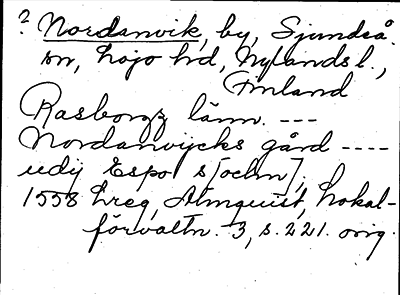 ? Nordanvik, by, Sjundeå
sn, Lojo hd, Nylands l.,
Finland
Rasborgz länn. ---
Nordanvijcks gård ----
udij Espo s[ochn],
1558 Lreg, Almquist, Lokal-
förvaltn. 3, s. 221. orig.